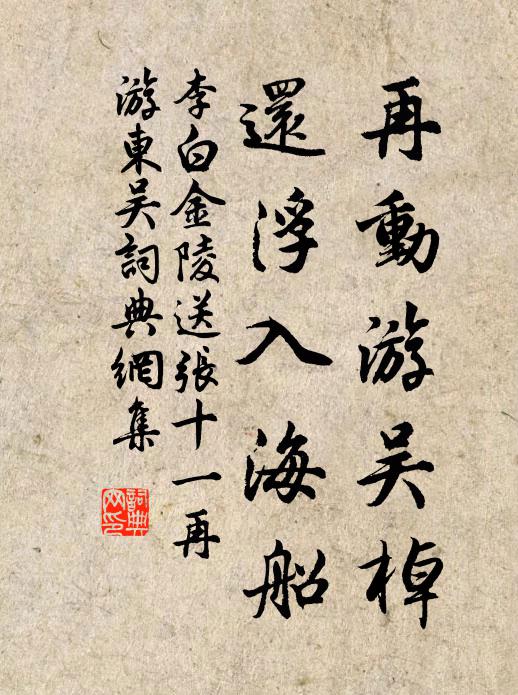 再動游吴棹
還浮入海船
李白金陵送張十一再
游東吴詞典網集
詞典
网印